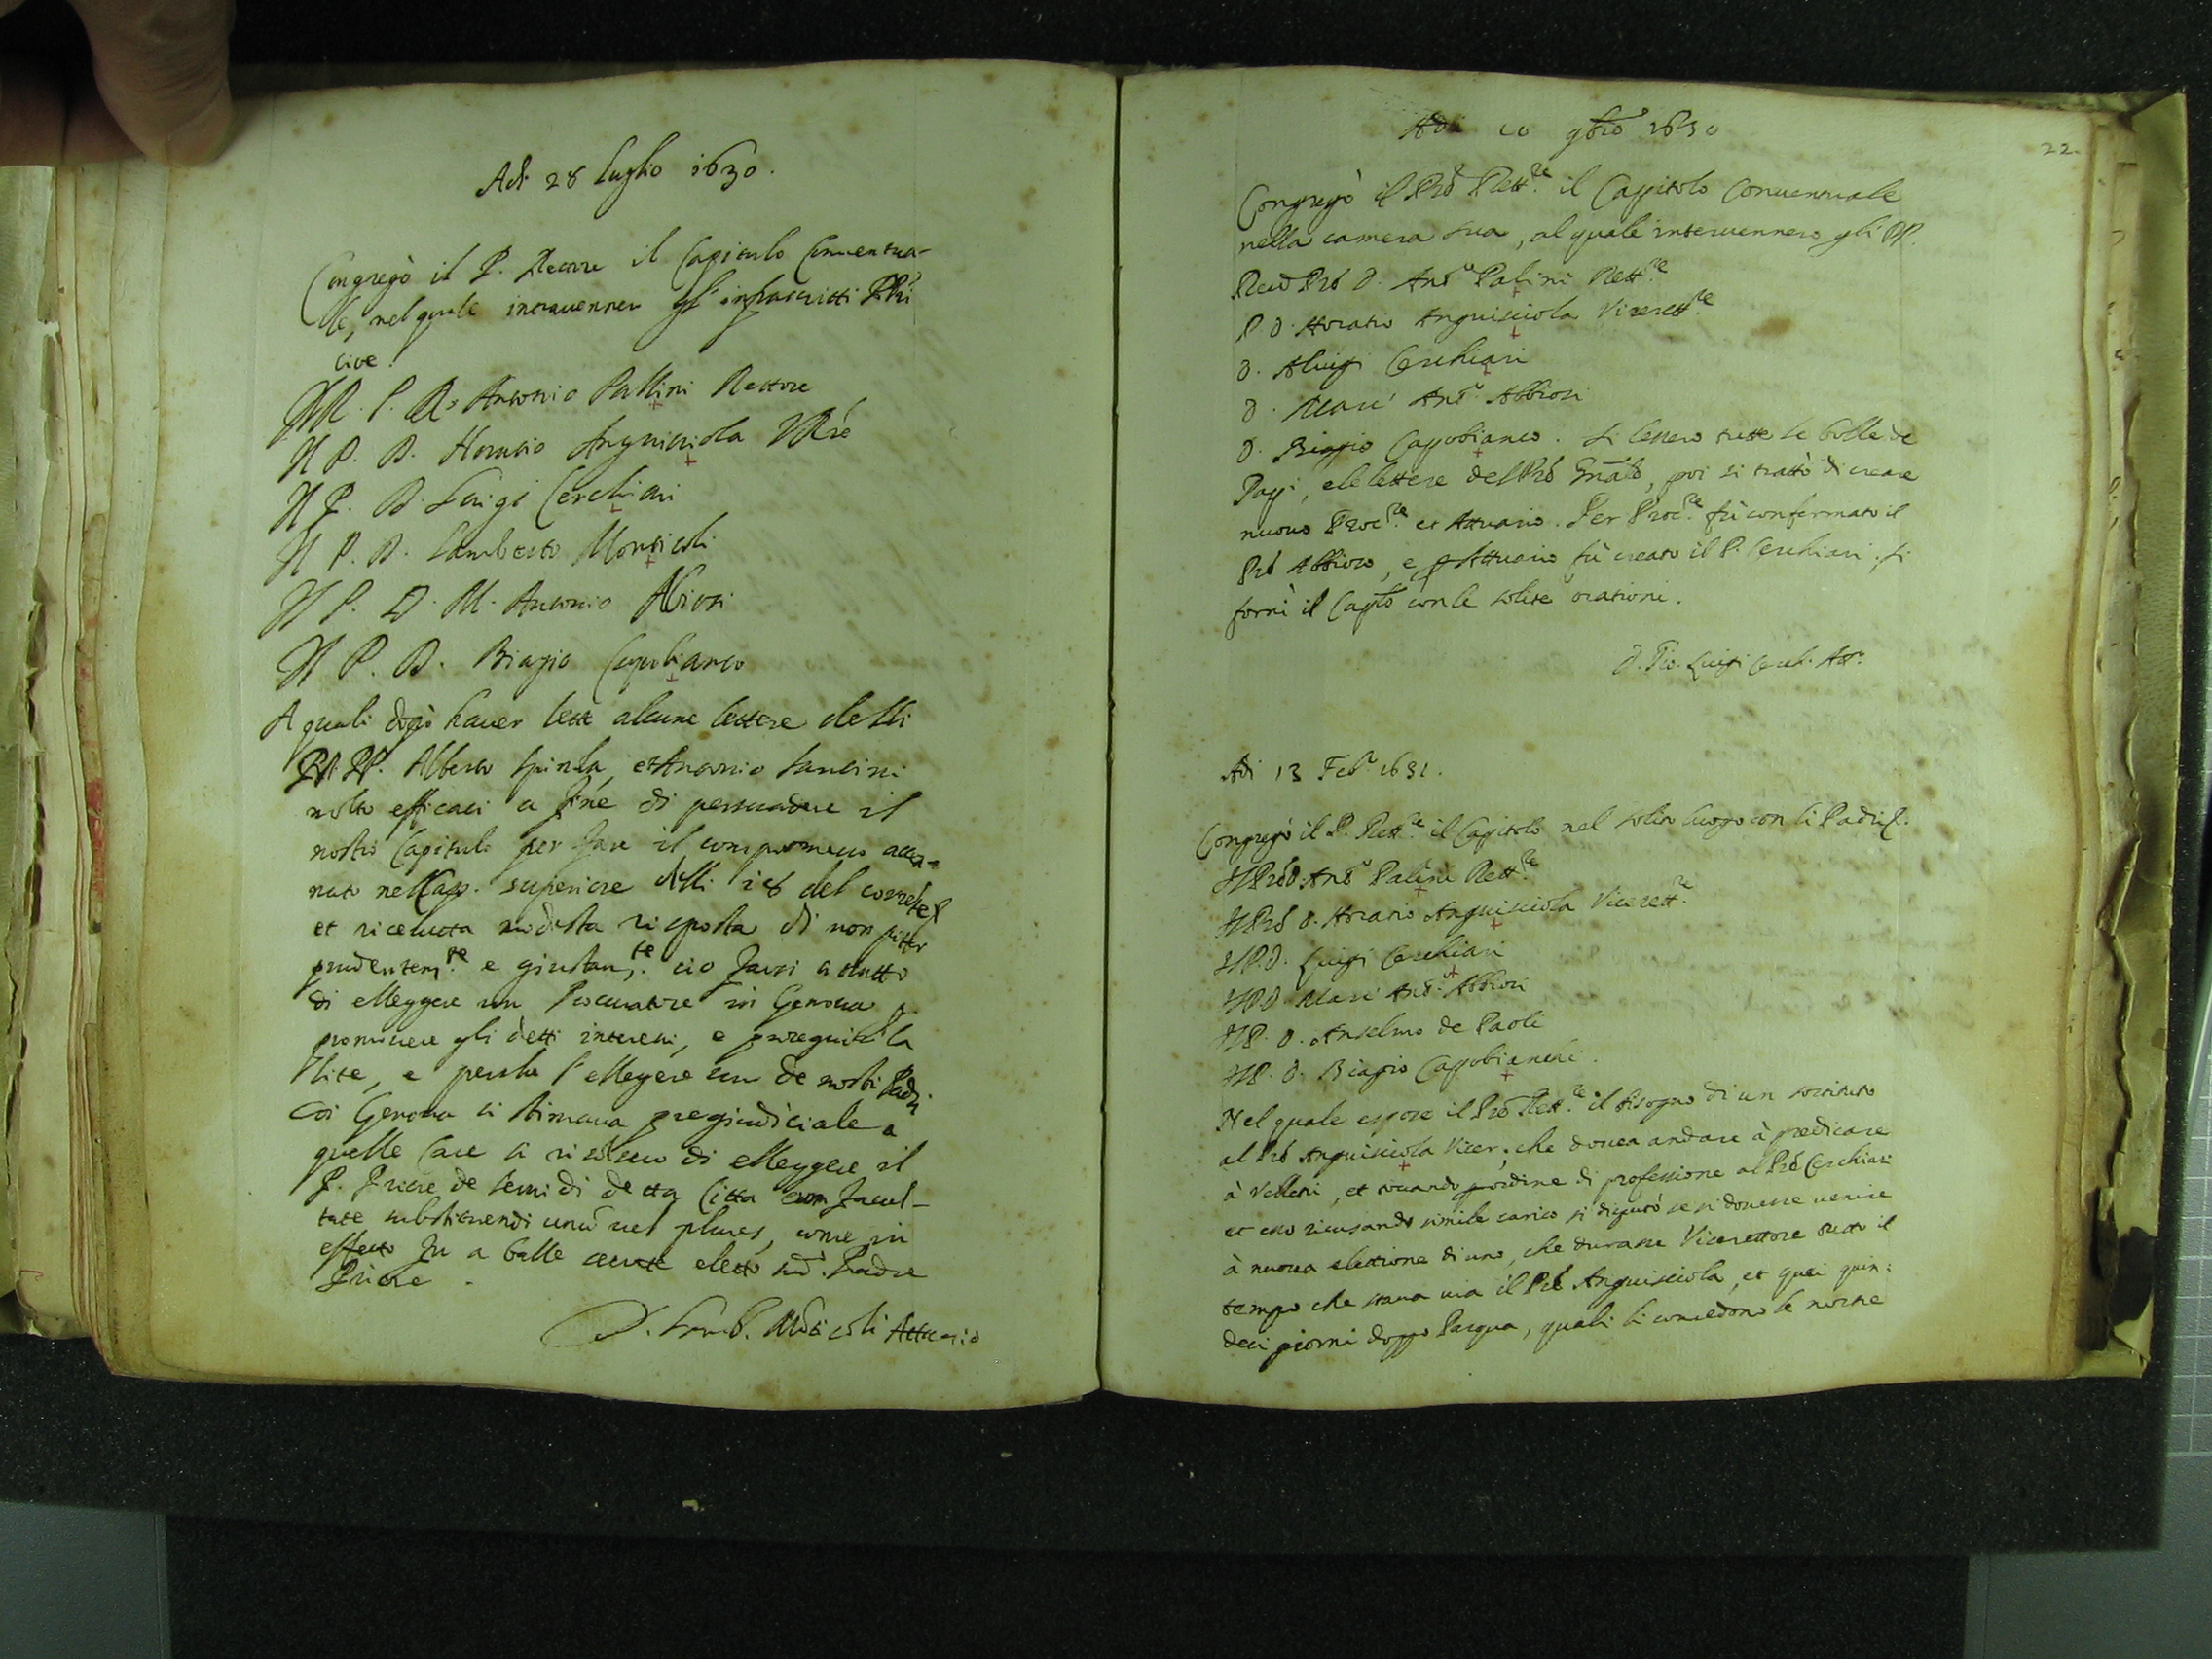 Adi 28 Luglio 1630.
Congregò il P. Rettore il Capitulo Conventua-
le, nel quale intravennero gl' infrascritti PPri
cioe
Il R. P. D. Antonio Pallini Rettore
Il P. D. Horatio Anguisciola VRre
Il P. D. Luigi Cerchiari
Il P. D. Lamberto Monticoli
Il P. D. M. Antonio Abiosi
Il P. D. Biagio Capobianco
A quali dopò haver lette alcune lettere delli
PP. Alberto Spinola, et Antonio Santini
molto efficaci a fine di persuadere il
nostro Capitulo per fare il compromesso accen-
nato nel Cap. superiore delli 18 del corrente
et ricevuta modesta risposta di non poter
prudentem.te e giustam.te cio farsi a tratto
di elleggere un Procuratore in Genova p
promovere gli detti interessi, e proseguir la
lite, e perche l'ellegere un de nostri Padri
Coi Genova si stimava pregiudiciale a
quelle Case si risolsero di elleggere il
P. Priore de Servi di detta Citta con facul-
tate substituendi unũ vel plures, come in
effetto fu a balle secrete eletto sud.o Padre
Priore.
D. Lamb. Mõticoli Attuario
22.
Adi 10 9bro 1630
Congregò il Prẽ Rett.re il Capitolo Conventuale
nella camera sua, al quale intervennero gli PP.
Revd Prẽ D. Antº Palini Rett.re
P. D. Horatio Anguisciola Vicerett.re
D. Aluigi Cerchiari
D. Marc' Antº Abbiosi
D. Biagio Capobianco. Si lessero tutte le bolle de
Papi, e le lettere del Prẽ Gnãle, poi si trattò di creare
nuovo Proc.re et Attuario. Per Proc.re fù confermato il
Prẽ Abbioso, e p Attuario fù creato il P. Cerchiari. Si
fornì il Caplo con le solite orationi.
D. Gio. Luigi Cerch. Att.o
Adi 13 Feb.o 1631.
Congregò il P. Rett.re il Capitolo nel solito luogo con li Padri
Il Prẽ D. Antº Palini Rett.re
Il Prẽ D. Horatio Anguisciola Vicerett.re
Il P. D. Luigi Cerchiari
Il P. D. Marc' Antº Abbiosi
Il P. D. Anselmo de Paoli
Il P. D. Biagio Capobianchi.
Nel quale espose il Prẽ Rett.re il bisogno di un sostituto
al Prẽ Anguisciola Vicer. che dovea andare à predicare
à Velletri, et toccando p ordine di professione al Prẽ Cerchiari
et esso ricusando simile carico si disputò se si dovesse venire
à nuova elettione di uno, che durasse Vicerettore tutto il
tempo che stava via il Prẽ Anguisciola, et quei quin:
deci giorni doppo Pasqua, quali li concedono le nostre